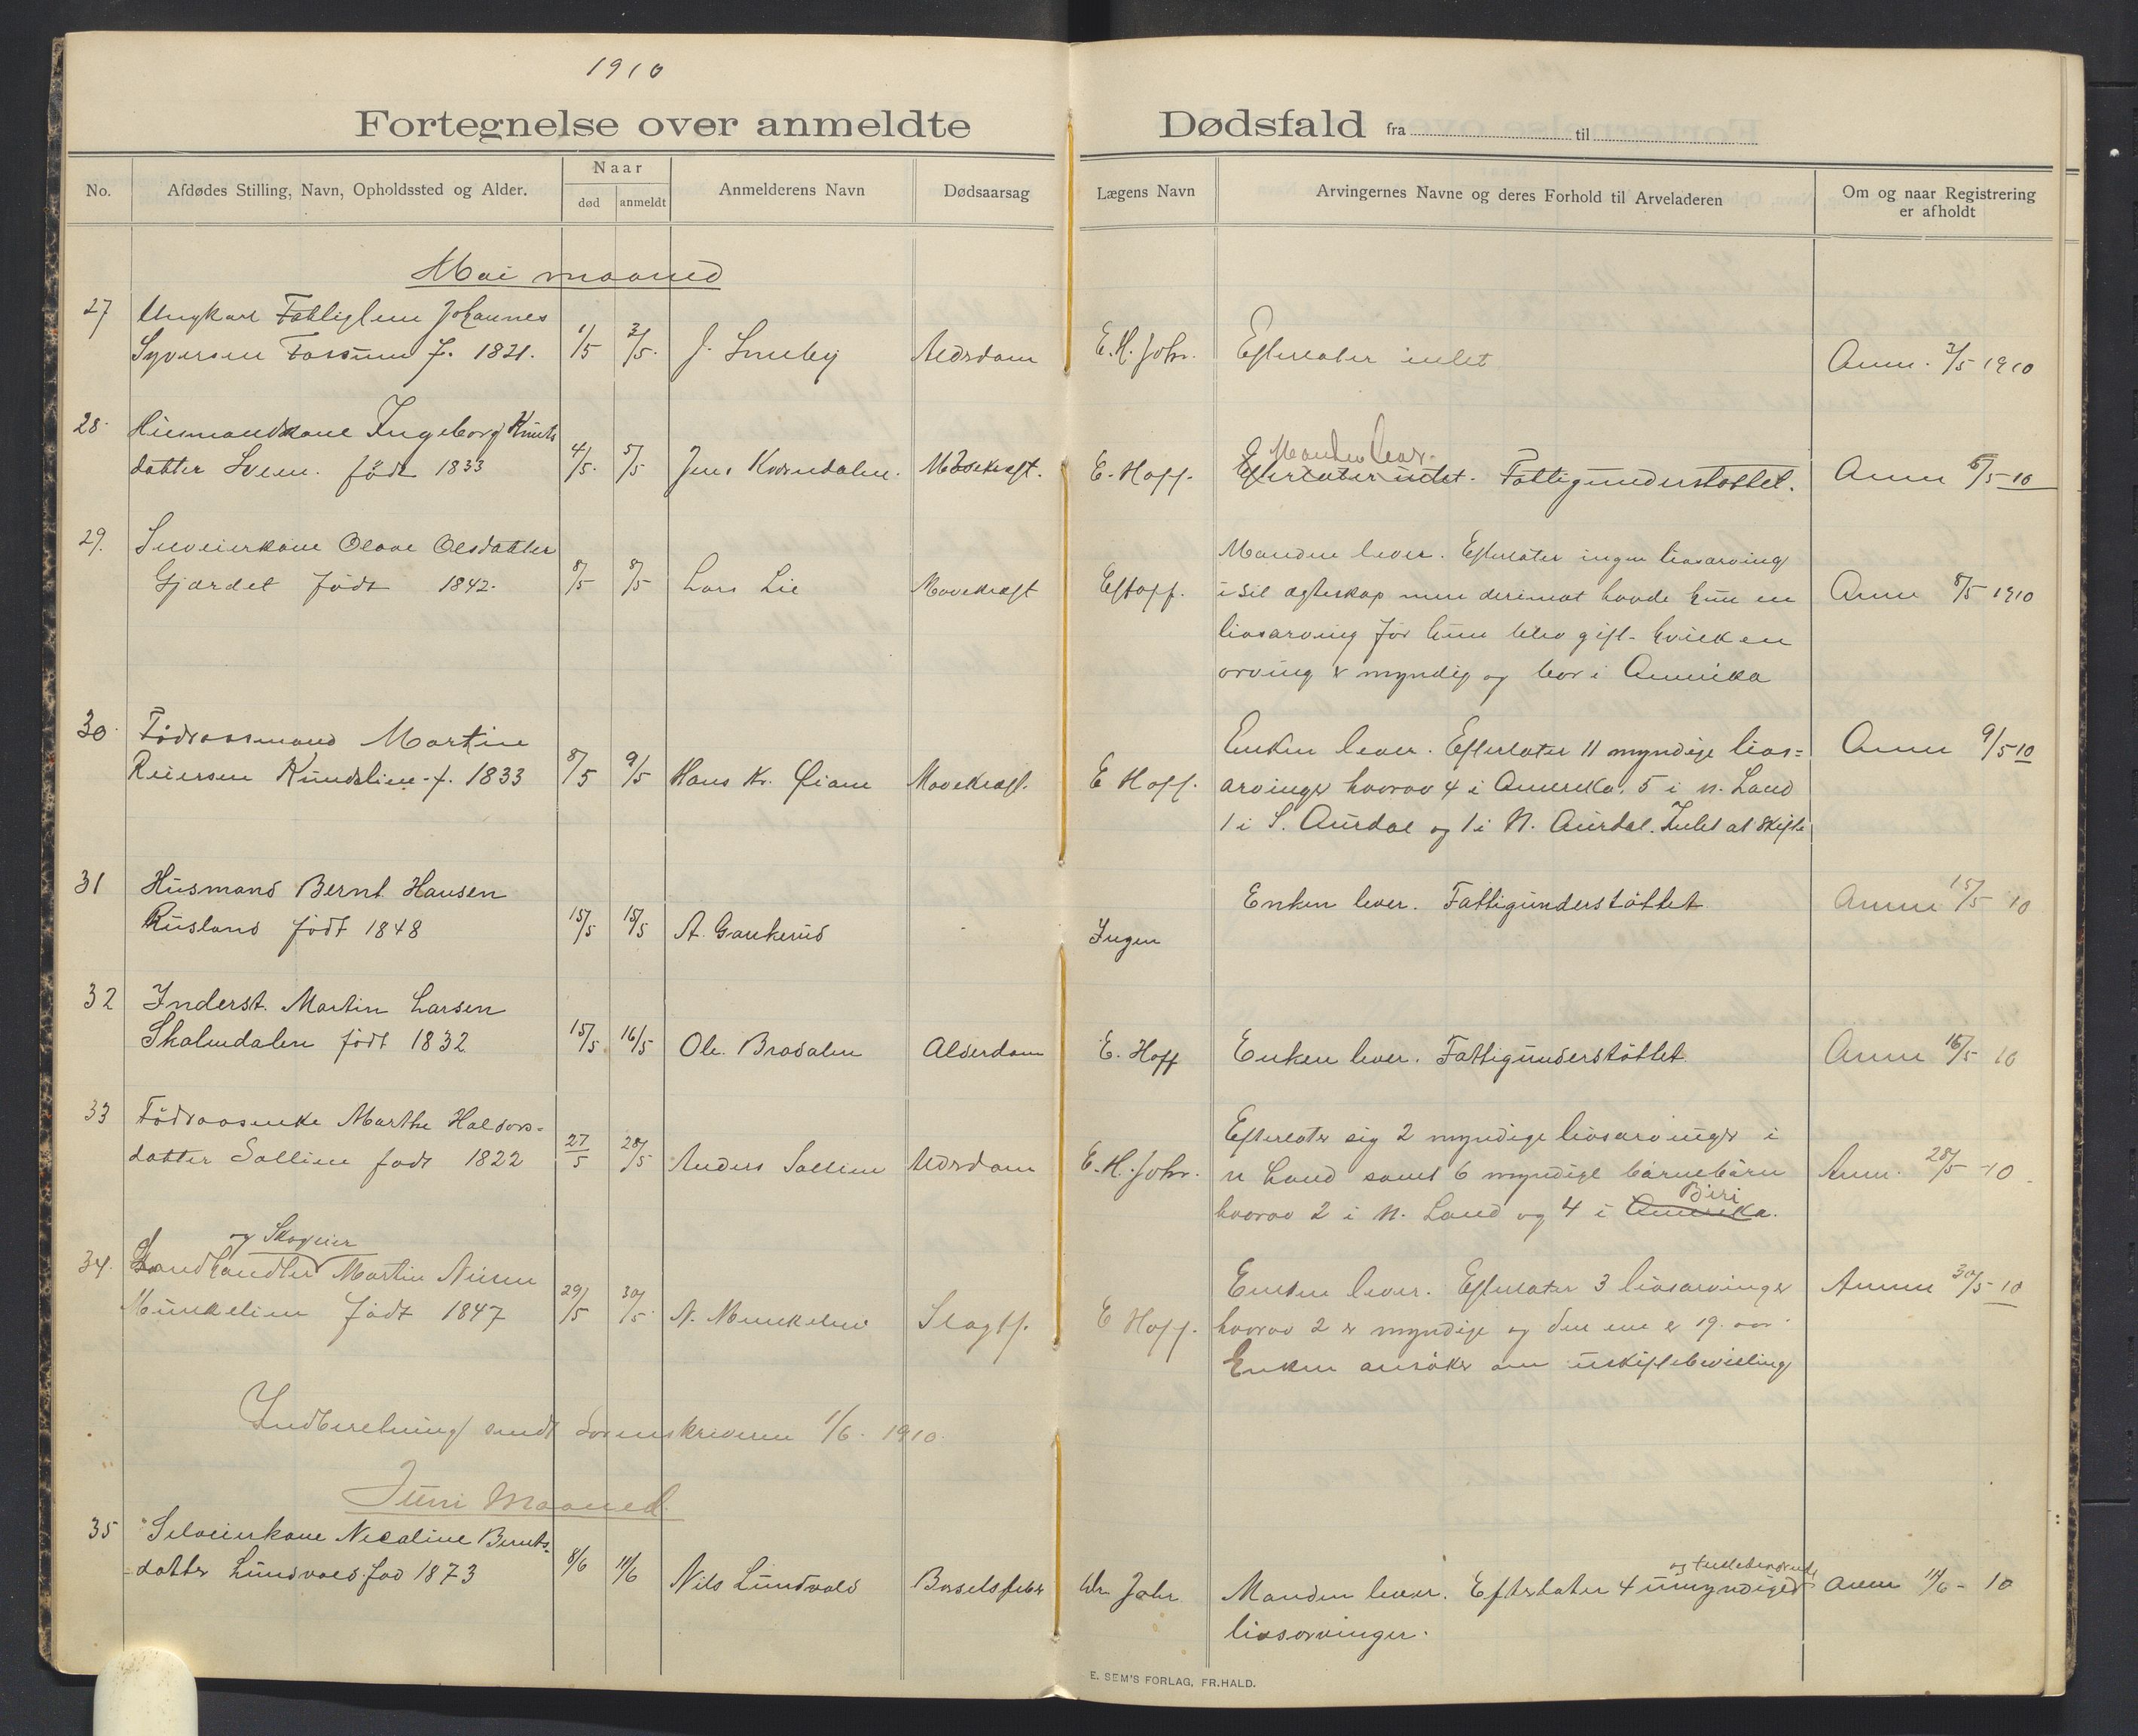 1910
Fortegnelse over anmeldte Dødsfald fra til
No.
Afdødes Stilling, Navn, Opholdssted og Alder.
Naar
død
anmeldt
Anmelderens Navn
Dødsaarsag
Lægens Navn
Arvingernes Navne og deres Forhold til Arveladeren
Om og naar Registrering
er afholdt
Mai maaned
27 Ungkarl Johannes
Syversen Fossum f. 1821. 1/5 3/5. J. Smeby Aldrdom E.H. Johr. Efterlater intet Anm. 3/5 1910
28. Husmandskone Ingeborg Knuts
Manden lever.
datter Sveen. født 1833 4/5. 5/5 Jens Kvorndalen. Mavekræft. E. Hoff. Efterlater intet. Fattigunderstøttet. Anm 5/5-10
29. Selveierkone Olave Olsdatter
Gjærdet født 1842. 8/5 8/5 Lars Lie Mavekræft E Hoff. Anm 8/5 1910
Manden lever. Efterlater ingen livsarving
i sit ægteskap men derimot havde hun en
livsarving før hun blev gift. hvilken
arving er myndig og bor i Amerika
30. Føderaasmand Martin
Reiersen Rundelien f. 1833 8/5 9/5 Hans Kr. Øiom Mavekræft. E Hoff. Anm 9/5 10
Enken lever. Efterlater 11 myndige livs=
arvinger hvorav 4 i Amerika. 5 i N. Land
1 i S. Aurdal og 1 i N. Aurdal. Intet at skifte
31 Husmand Bernt Hansen
Rusland født 1848 15/5 15/5 A. Gaukerud Ingen Enken lever. Fattigunderstøttet Anm 15/5 10
32 Inderst. Martin Larsen
Skalmdalen født 1832 15/5 16/5 Ole. Brodalen Alderdom E. Hoff Enken lever. Fattigunderstøttet. Anm 16/5 10
33 Føderaasenke Marthe Haldors=
datter Sollien født 1822 27/5 28/5 Anders Sollien Aldrdom E.H. Johr. Anm. 28/5 -10
Efterlater sig 2 myndige livsarvinger i
N Land samt 6 myndige barnebarn
Biri
hvorav 2 i N. Land og 4 i Amerika.
og Skogeier
34. Landhandler Martin Nilsen
Munkelien født 1847 29/5 30/5 N. Munkelien Slagtf. E Hoff. Anm 30/5-10
Enken lever. Efterlater 3 livsarvinger
hvorav 2 er myndige og den ene er 19. aar.
Enken ansøker om uskiftebevilling
Indberetning sendt Sorenskriveren 1/6. 1910.
Juni Maaned.
35 Selveierkone Nicoline Bernts=
datter Lundvold. fød 1873 8/6 11/6 Nils Lundvold Barselsfeber Dr. Johr
Manden lever. Efterlater 4 umyndige Anm 11/6- 10
livsarvinger.
E. SEM'S FORLAG, FR.HALD.